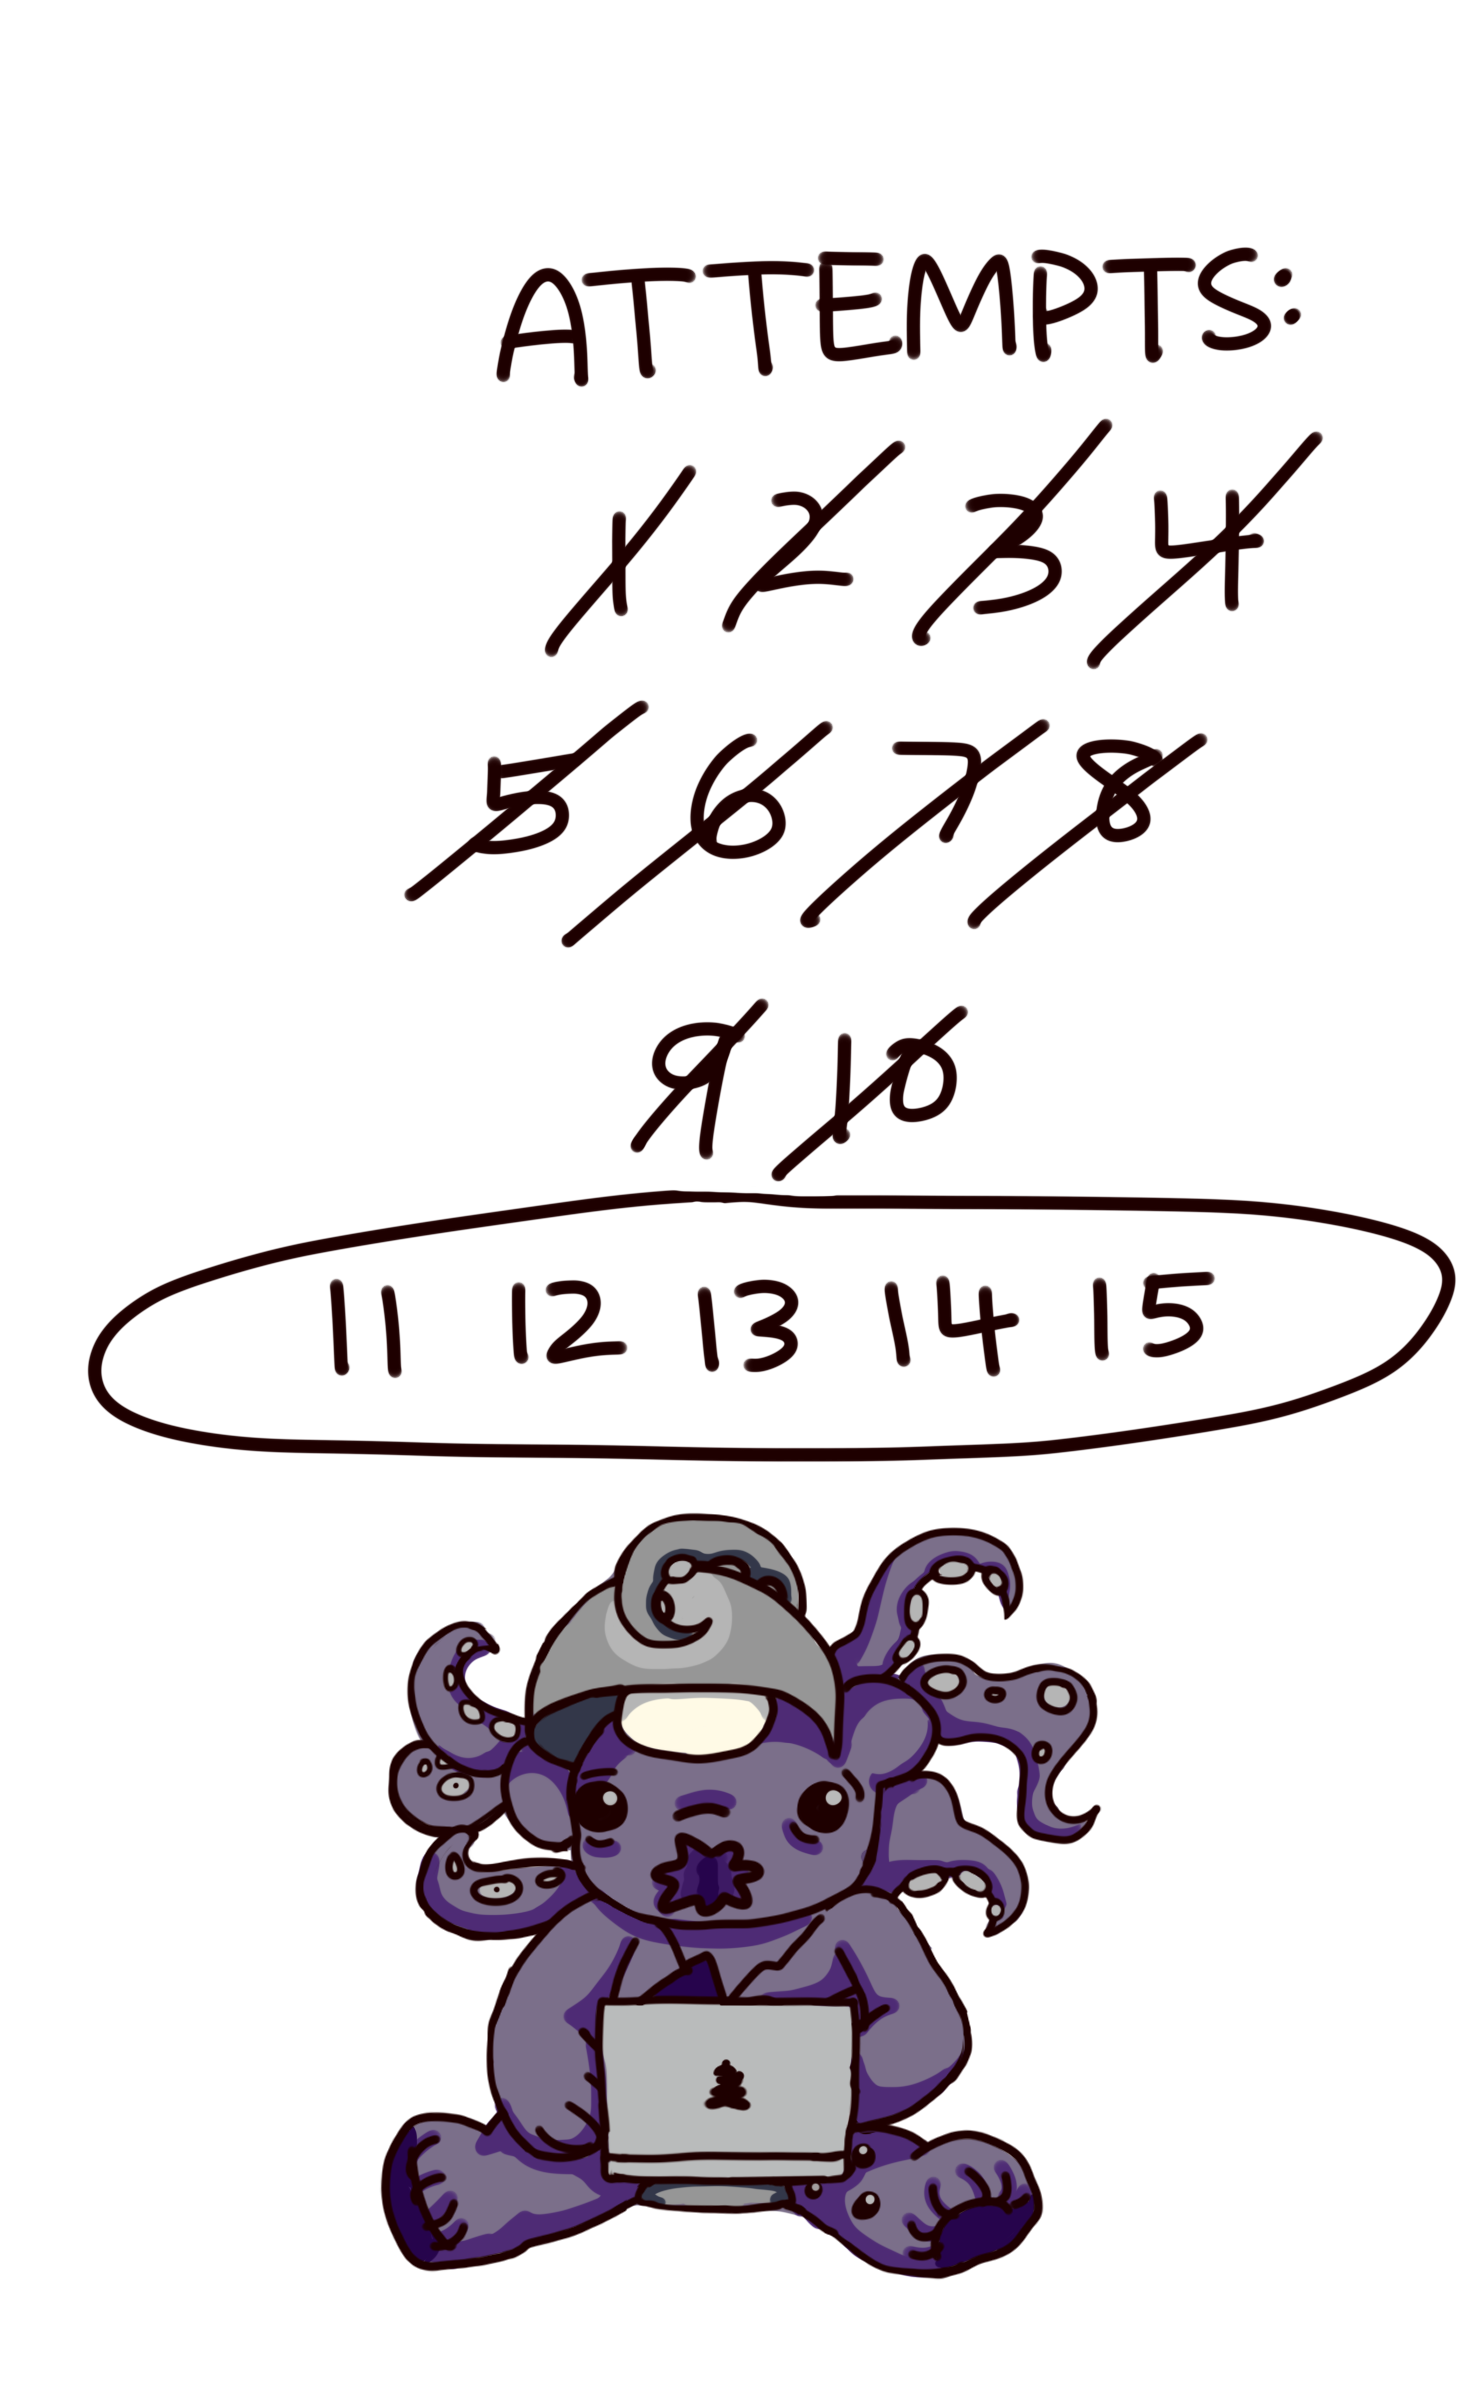 ATTEMPTS:
1 2 3 4
5 6 7 8
9 10
11 12 13 14 15